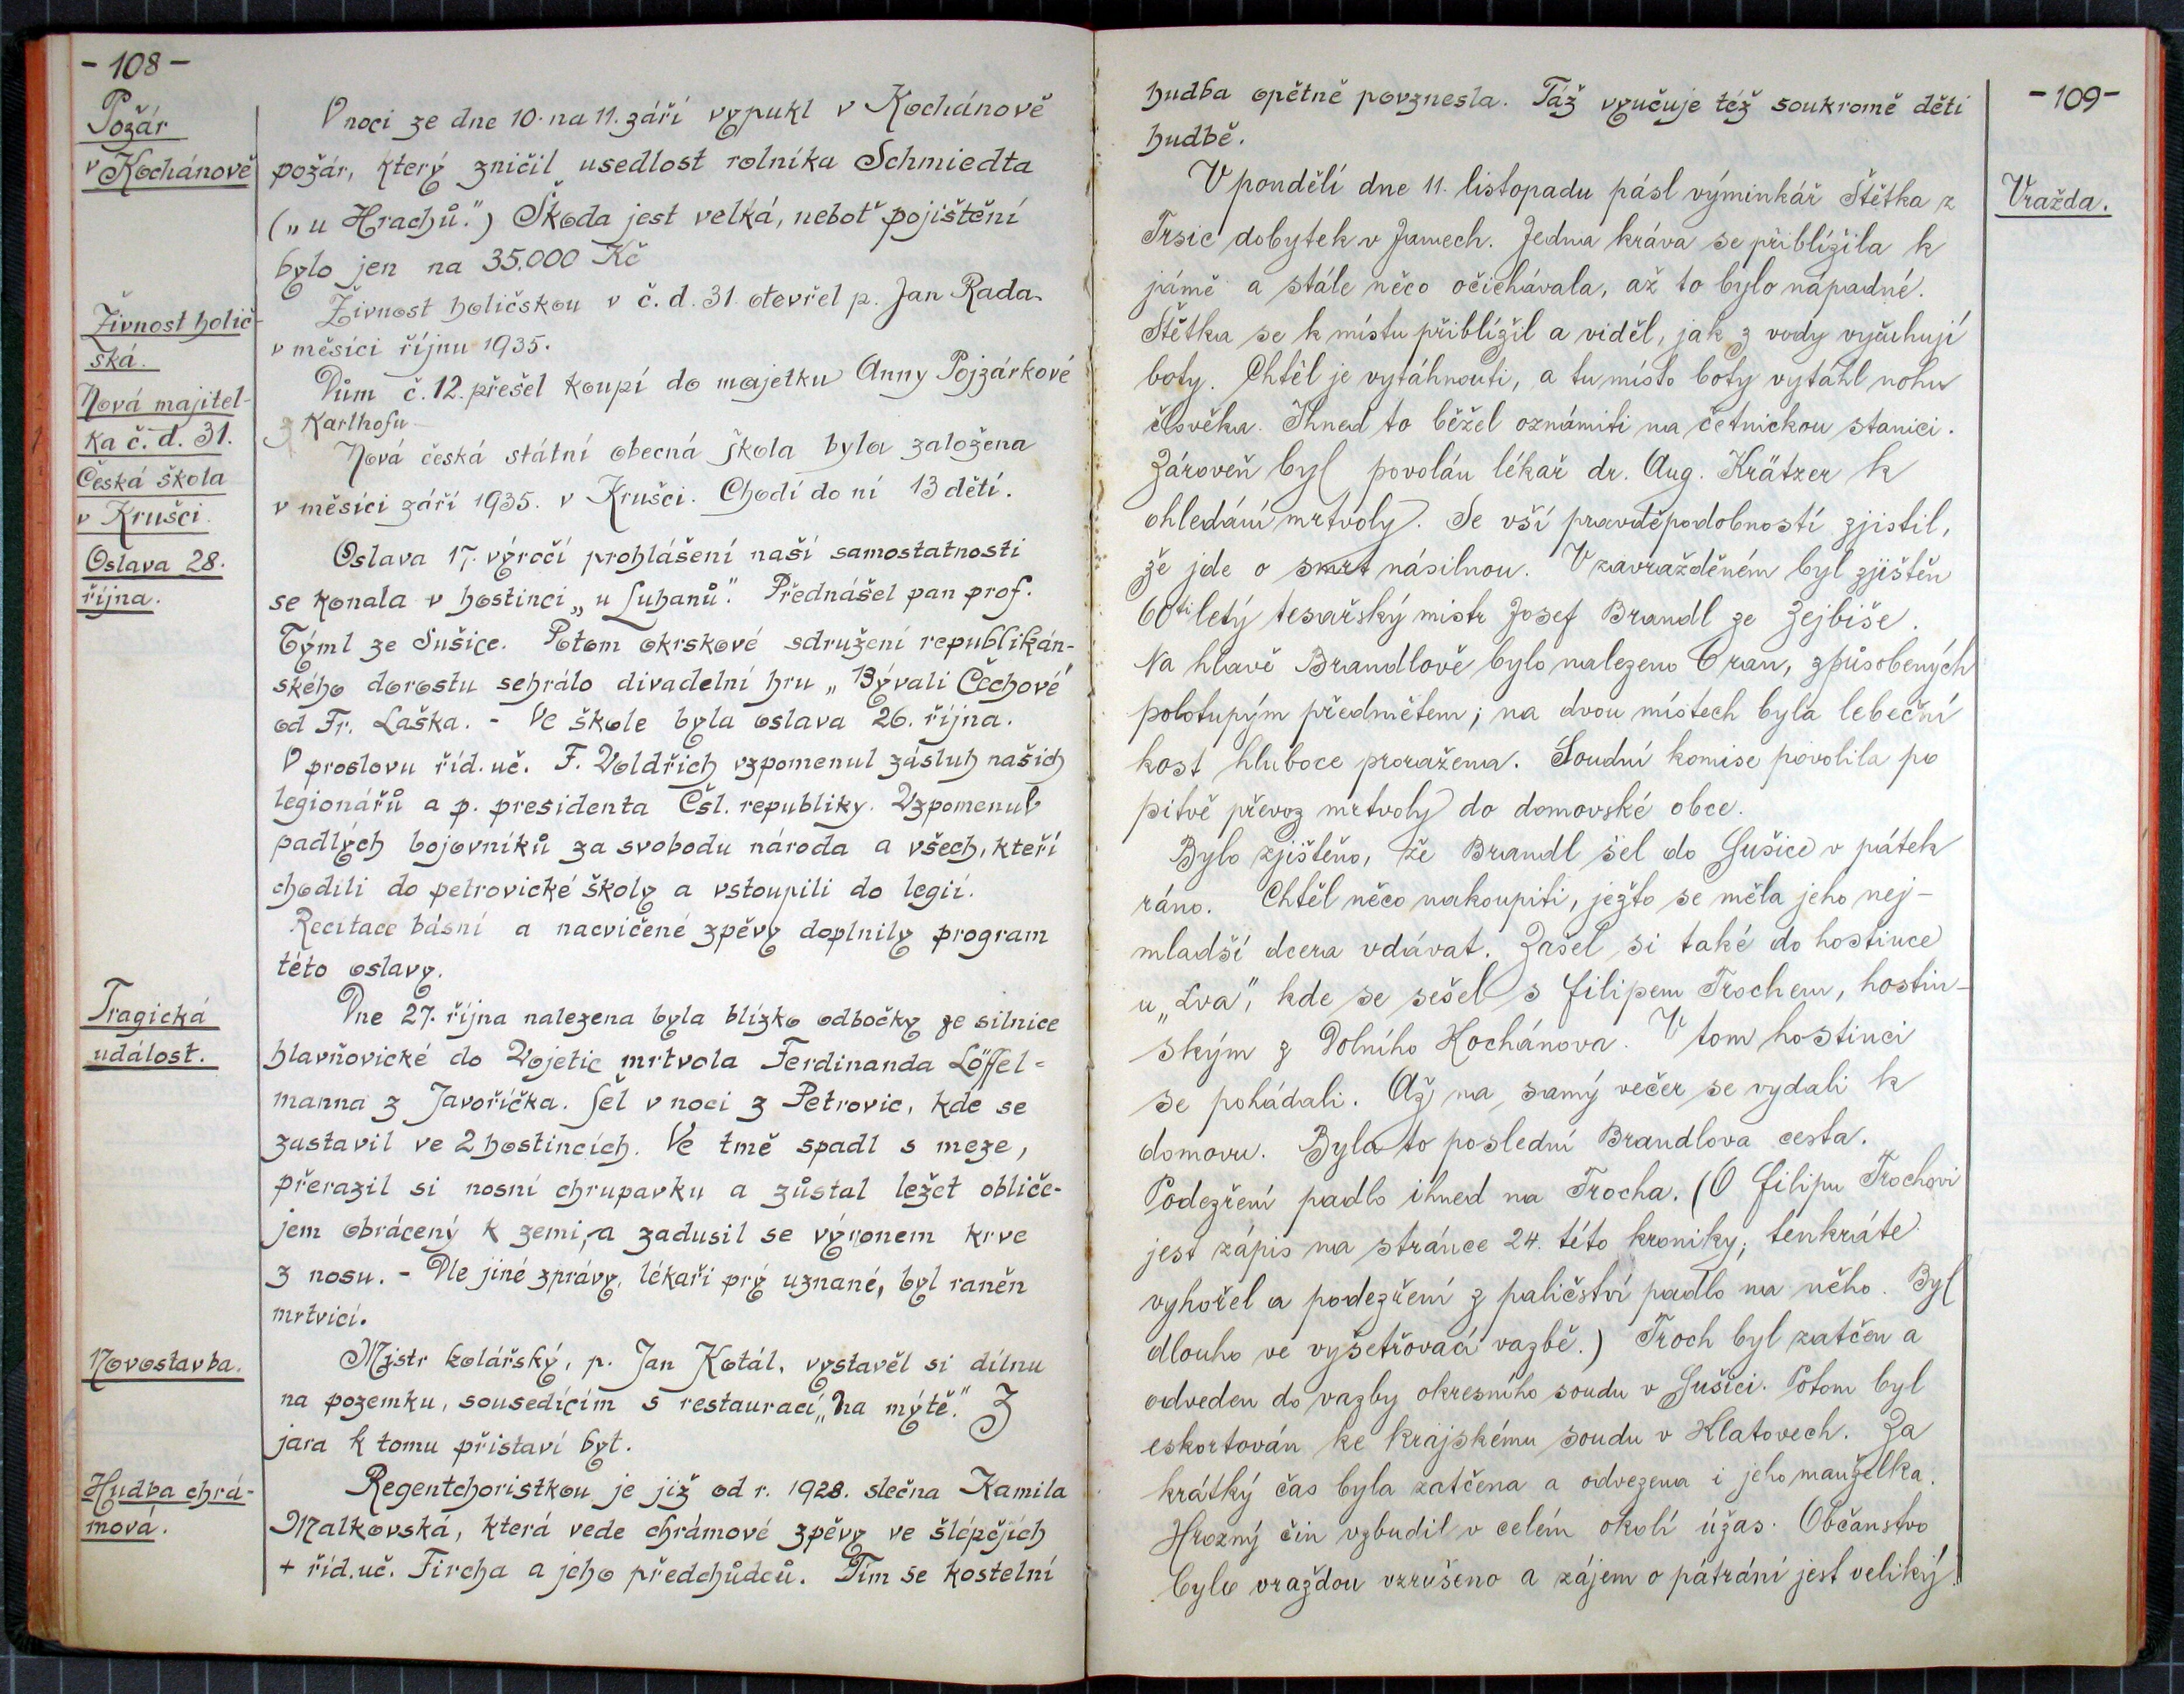 - 108 -
Požár
v Kochánově
V noci ze dne 10. na 11. září vypukl v Kochánově
požár, který zničil usedlost rolníka Schmiedta
(„u Hrachů.") Škoda jest velká, neboť pojištění
bylo jen na 35.000 Kč
Živnost holič-
ská.
Živnost holičskou v č. d. 31. otevřel p. Jan Rada
v měsíci říjnu 1935.
Nová majitel-
ka č. d. 31.
Dům č. 12. přešel koupí do majetku Anny Pojzárkové
z Karlhofu
Česká škola
v Krušci.
Nová česká státní obecná škola byla založena
v měsíci září 1935. v Krušci. Chodí do ní 13 dětí.
Oslava 28.
října.
Oslava 17. výročí prohlášení naší samostatnosti
se konala v hostinci „u Luhanů." Přednášel pan prof.
Týml ze Sušice. Potom okrskové sdružení republikán-
ského dorostu sehrálo divadelní hru „Bývali Čechové"
od Fr. Laška. - Ve škole byla oslava 26. října.
V proslovu říd. uč. F. Voldřich vzpomenul zásluh našich
legionářů a p. presidenta Čsl. republiky. Vzpomenul
padlých bojovníků za svobodu národa a všech, kteří
chodili do petrovické školy a vstoupili do legií.
Recitace básní a nacvičené zpěvy doplnily program
této oslavy.
Tragická
událost.
Dne 27. října nalezena byla blízko odbočky ze silnice
hlavňovické do Vojetic mrtvola Ferdinanda Löffel-
manna z Javoříčka. Šel v noci z Petrovic, kde se
zastavil ve 2 hostincích. Ve tmě spadl s meze,
přerazil si nosní chrupavku a zůstal ležet obliče-
jem obrácený k zemi, a zadusil se výronem krve
z nosu. - Dle jiné zprávy, lékaři prý uznané, byl raněn
mrtvicí.
Novostavba.
Mistr kolářský, p. Jan Kotál, vystavěl si dílnu
na pozemku, sousedícím s restaurací „Na mýtě." Z
jara k tomu přistaví byt.
Hudba chrá-
mová.
Regentchoristkou je již od r. 1928. slečna Kamila
Malkovská, která vede chrámové zpěvy ve šlépějích
+ říd. uč. Fircha a jeho předchůdců. Tím se kostelní
- 109 -
hudba opětně povznesla. Táž vyučuje též soukromě děti
hudbě.
Vražda.
V pondělí dne 11. listopadu pásl výminkář Štětka z
Trsic dobytek v Jamech. Jedna kráva se přiblížila k
jámě a stále něco očichávala, až to bylo nápadné.
Štětka se k místu přiblížil a viděl, jak z vody vyčuhují
boty. Chtěl je vytáhnouti, a tu místo boty vytáhl nohu
člověka. Ihned to běžel oznámiti na četnickou stanici.
Zároveň byl povolán lékař dr. Aug. Krätzer k
ohledání mrtvoly. Se vší pravděpodobností zjistil,
že jde o smrt násilnou. V zavražděném byl zjištěn
60ti letý tesařský mistr Josef Brandl ze Zejbiše.
Na hlavě Brandlově bylo nalezeno 6 ran, způsobených
polotupým předmětem; na dvou místech byla lebeční
kost hluboce proražena. Soudní komise povolila po
pitvě převoz mrtvoly do domovské obce.
Bylo zjištěno, že Brandl šel do Sušice v pátek
ráno. Chtěl něco nakoupiti, ježto se měla jeho nej-
mladší dcera vdávat. Zašel si také do hostince
u „Lva", kde se sešel s Filipem Trochem, hostin-
ským z Dolního Kochánova. V tom hostinci
se pohádali. Až na samý večer se vydali k
domovu. Byla to poslední Brandlova cesta.
Podezření padlo ihned na Trocha. (O Filipu Trochovi
jest zápis na stránce 24. této kroniky; tenkráte
vyhořel a podezření z paličství padlo na něho. Byl
dlouho ve vyšetřovací vazbě.) Troch byl zatčen a
odveden do vazby okresního soudu v Sušici. Potom byl
eskortován ke krajskému soudu v Klatovech. Za
krátký čas byla zatčena a odvezena i jeho manželka.
Hrozný čin vzbudil v celém okolí úžas. Občanstvo
bylo vraždou vzrušeno a zájem o pátrání jest veliký.